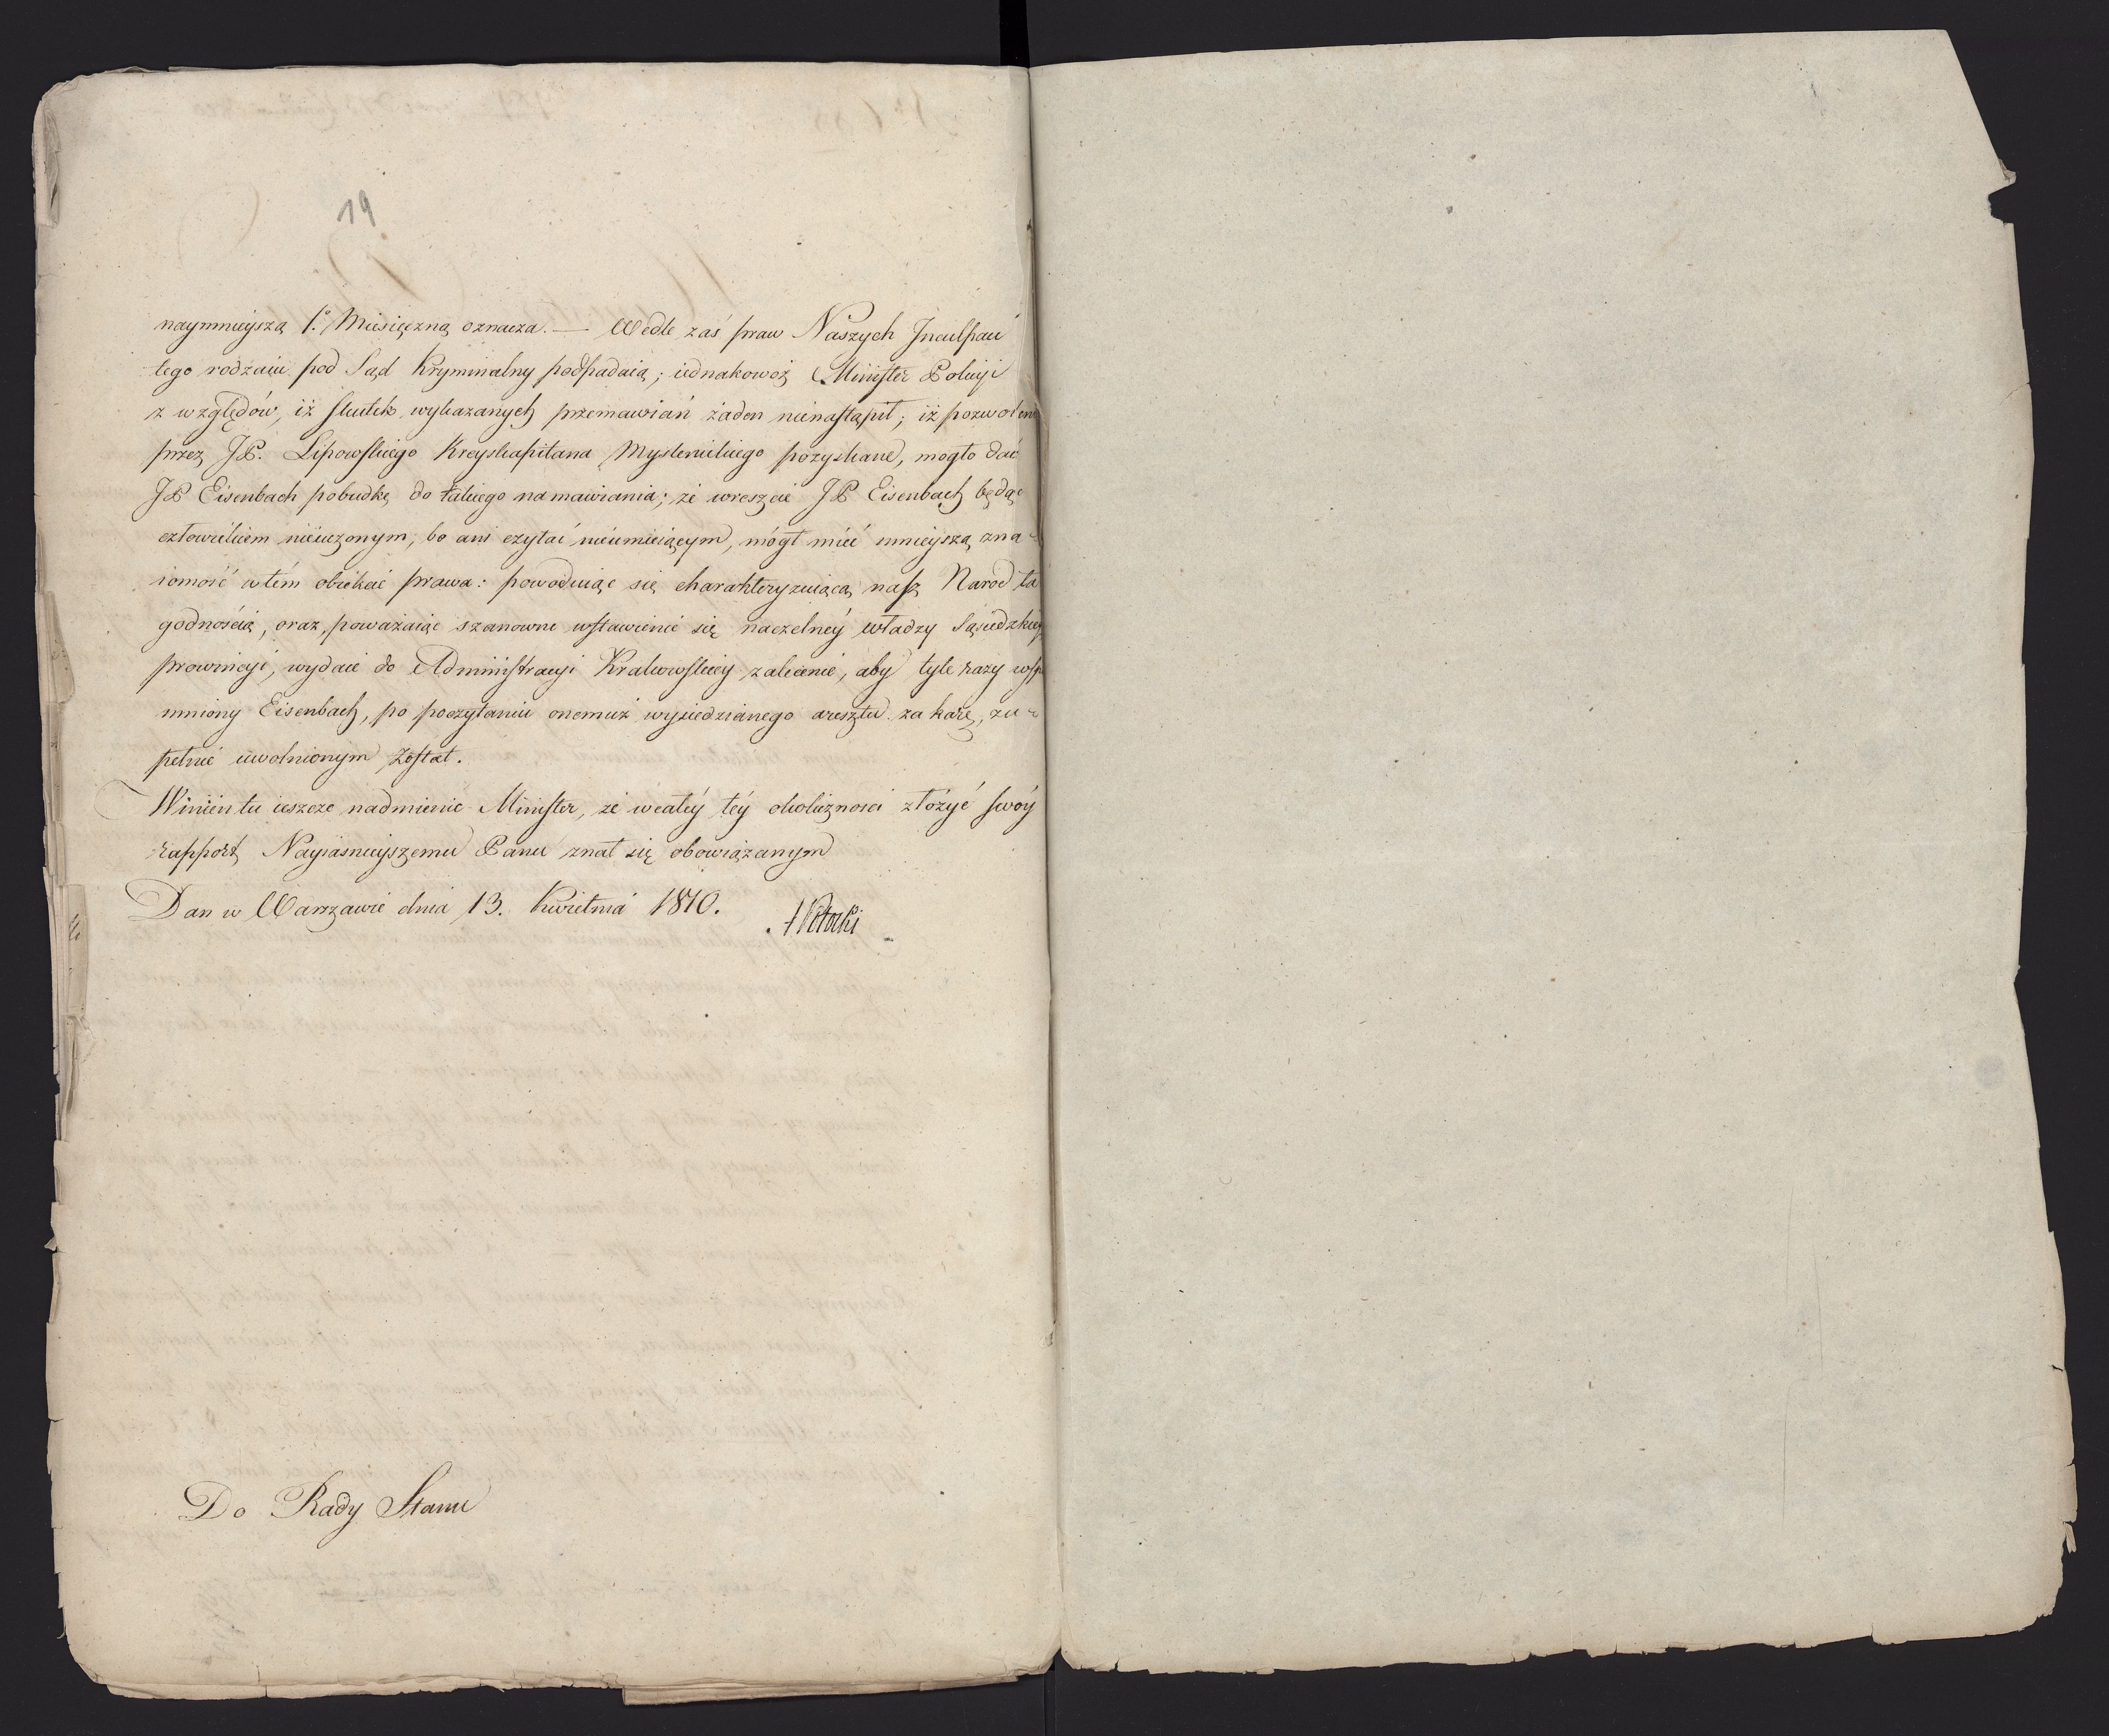 19
naymnieyszą 1.º Miesięczną oznacza. — Wedle zaś praw Naszych Inculpaci
tego rodzaiu pod Sąd Kryminalny podpadaią; iednakowoż Minister Policyi
z względów, iż skutek wykazanych przemawiań żaden nienastąpił; iż pozwoleni
przez JP. Lipowskiego Kreyskapitana Myslenickiego pozyskane, mogło dać
JP Eisenbach pobudkę do takiego namawiania; że wreszcie JP Eisenbach będąc
człowiekiem nieuczonym, bo ani czytać nieumieiącym, mógł mieć mnieyszą zna-
iomość w tém obiekcie prawa: powoduiąc się charakteryzuiącą nasz Narod ła
godnością, oraz, poważaiąc szanowne wstawienie się naczelney władzy Sąsiedzkiey
prowincyi, wydaie do Administracyi Krakowskiey zalecenie, aby tyle razy wspo
mniony Eisenbach, po poczytaniu onemuż wysiedzianego aresztu za karę, zu-
pełnie uwolnionym został.
Winien tu ieszcze nadmienic Minister, że w całéy téy okoliczności złożyć swóy
rapport Nayiasnieyszemu Panu znał się obowiązanym
Dan w Warszawie dnia 13. Kwietnia 1810.
Potocki
Do Rady Stanu